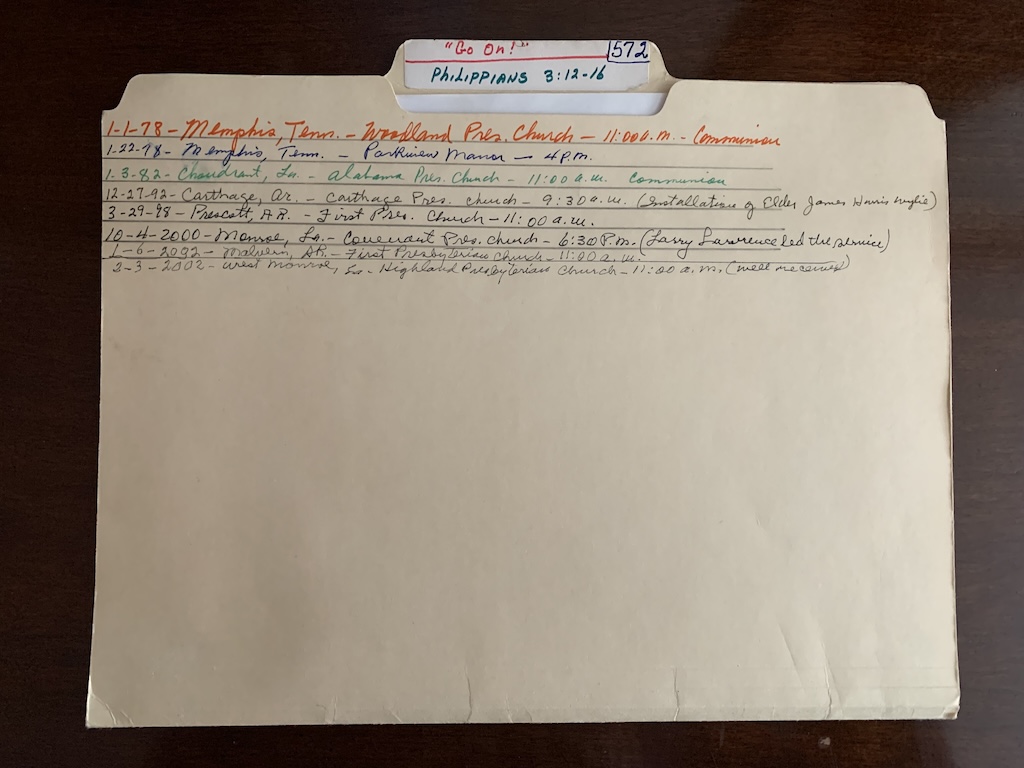 "Go On!"
572
PHILIPPIANS 3:12-16
1-1-78- Memphis, Tenn. - Woodland Pres. Church - 11:00 a.m. - Communion
1-22-78- Memphis, Tenn. - Parkview Manor - 4 P.M.
1-3-82- Choudrant, La. - Alabama Pres. Church - 11:00 a.m. Communion
12-27-92- Carthage, Ar. - Carthage Pres. Church - 9:30 a.m. (Installation of Elder James Harris Wylie)
3-29-98- Prescott, AR. - First Pres. Church - 11:00 a.m.
10-4-2000- Monroe, La. - Covenant Pres. Church - 6:30 P.M. (Larry Lawrence led the service)
1-6-2002- Malvern, AR. - First Presbyterian Church - 11:00 a.m.
3-3-2002- West Monroe, La. - Highland Presbyterian Church - 11:00 a.m. (well received)